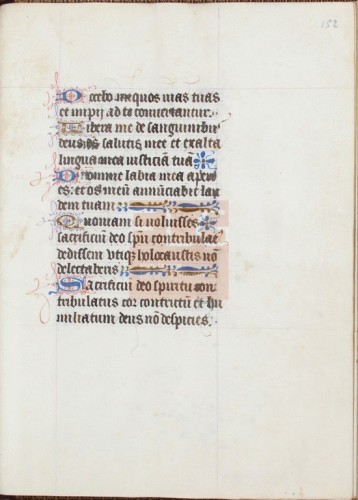 152
Docebo iniquos uias tuas
et impij ad te conuertantur.
Libera me de sanguinibus
deus deus salutis mee et exalta
lingua mea iusticiā tuā
Domine labia mea aperi
es: et os meū annūciabit lau
dem tuam
Quoniam si uoluisses
sacrificiū
dedissem vtiq̃ holocaustis nō
delectaberis
Sacrificiū deo spiritus con
tribulatus cor contrictū et hu
miliatum deus nō despicies.